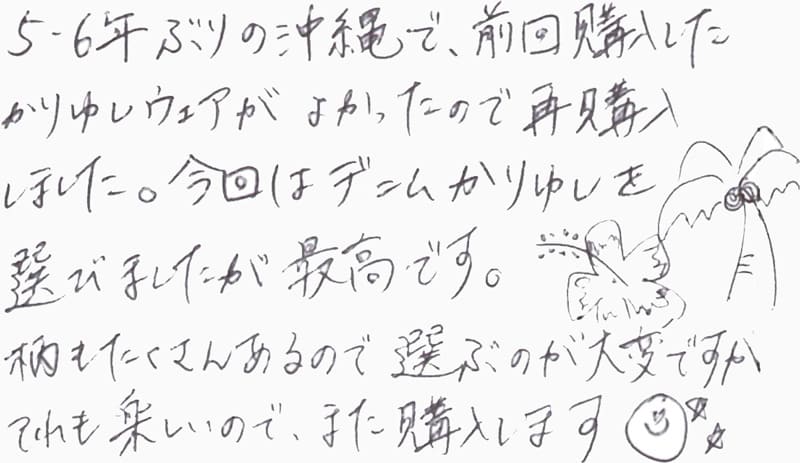 5-6年ぶりの沖縄で、前回購入した
かりゆしウェアがよかったので再購入
しました。今回はデニムかりゆしを
選びましたが最高です。
柄もたくさんあるので選ぶのが大変ですが
それも楽しいので、また購入します